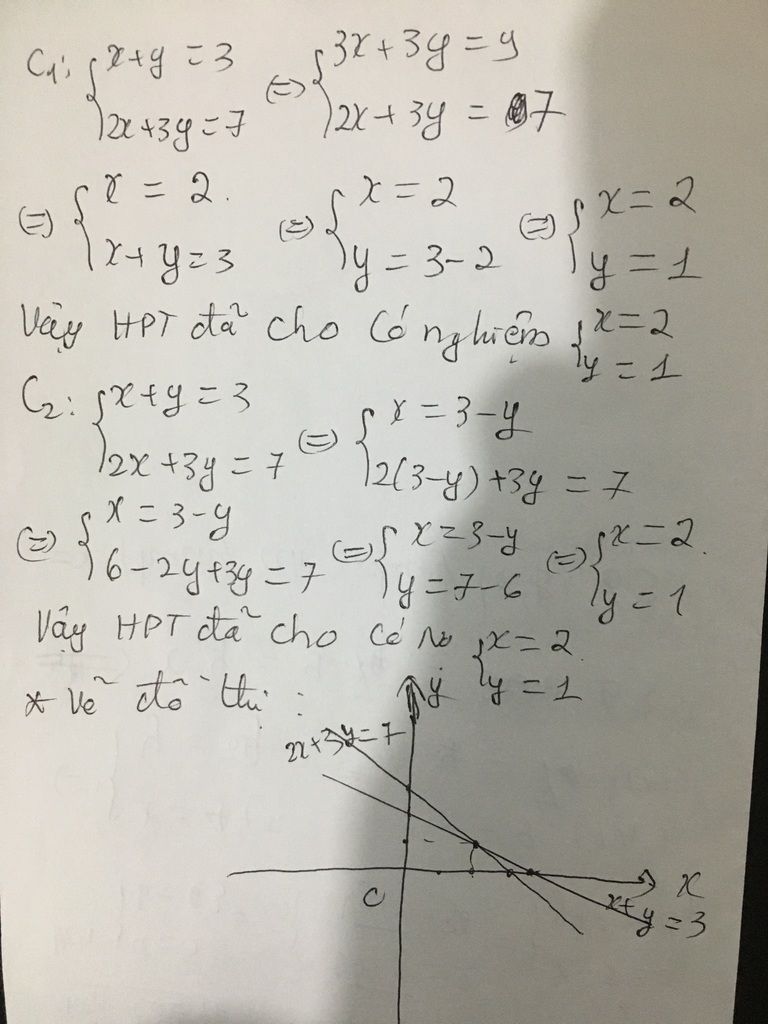 C1: { x+y = 3 2x+3y = 7 (=) { 3x+3y = 9 2x+3y = 7
(=) { x = 2. x+y = 3 (=) { x = 2 y = 3-2 (=) { x = 2 y = 1
Vậy HPT đã cho có nghiệm { x = 2 y = 1
C2: { x+y = 3 2x+3y = 7 (=) { x = 3-y 2(3-y)+3y = 7
(=) { x = 3-y 6-2y+3y = 7 (=) { x = 3-y y = 7-6 (=) { x = 2. y = 1
Vậy HPT đã cho có no { x = 2 y = 1
* vẽ đồ thị :
y
2x+3y = 7
x
x+y = 3